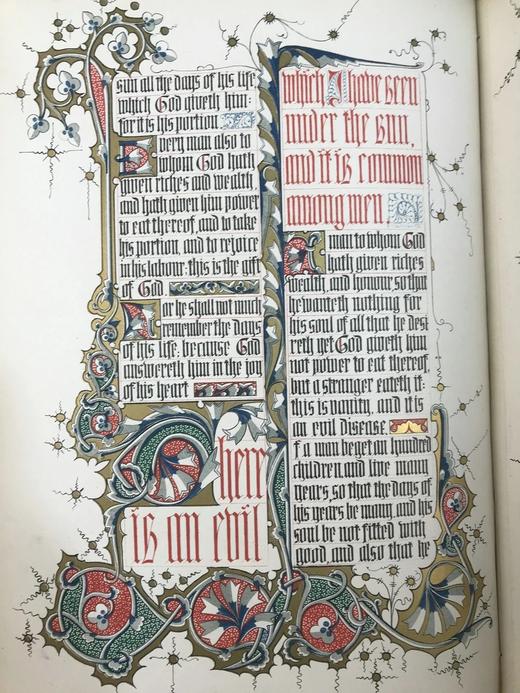 sun all the days of his life,
which God giveth him:
for it is his portion
Every man also to
whom God hath
given riches and wealth,
and hath given him power
to eat thereof, and to take
his portion, and to rejoice
in his labour: this is the gift
of God
For he shall not much
remember the days
of his life; because God
answereth him in the joy
of his heart
There
is an evil
which I have seen
under the sun,
and it is common
among men
A man to whom God
hath given riches
wealth, and honour, so that
he wanteth nothing for
his soul of all that he desi
reth yet God giveth him
not power to eat thereof,
but a stranger eateth it:
this is vanity, and it is
an evil disease.
If a man beget an hundred
children, and live many
years, so that the days of
his years be many, and his
soul be not filled with
good, and also that he